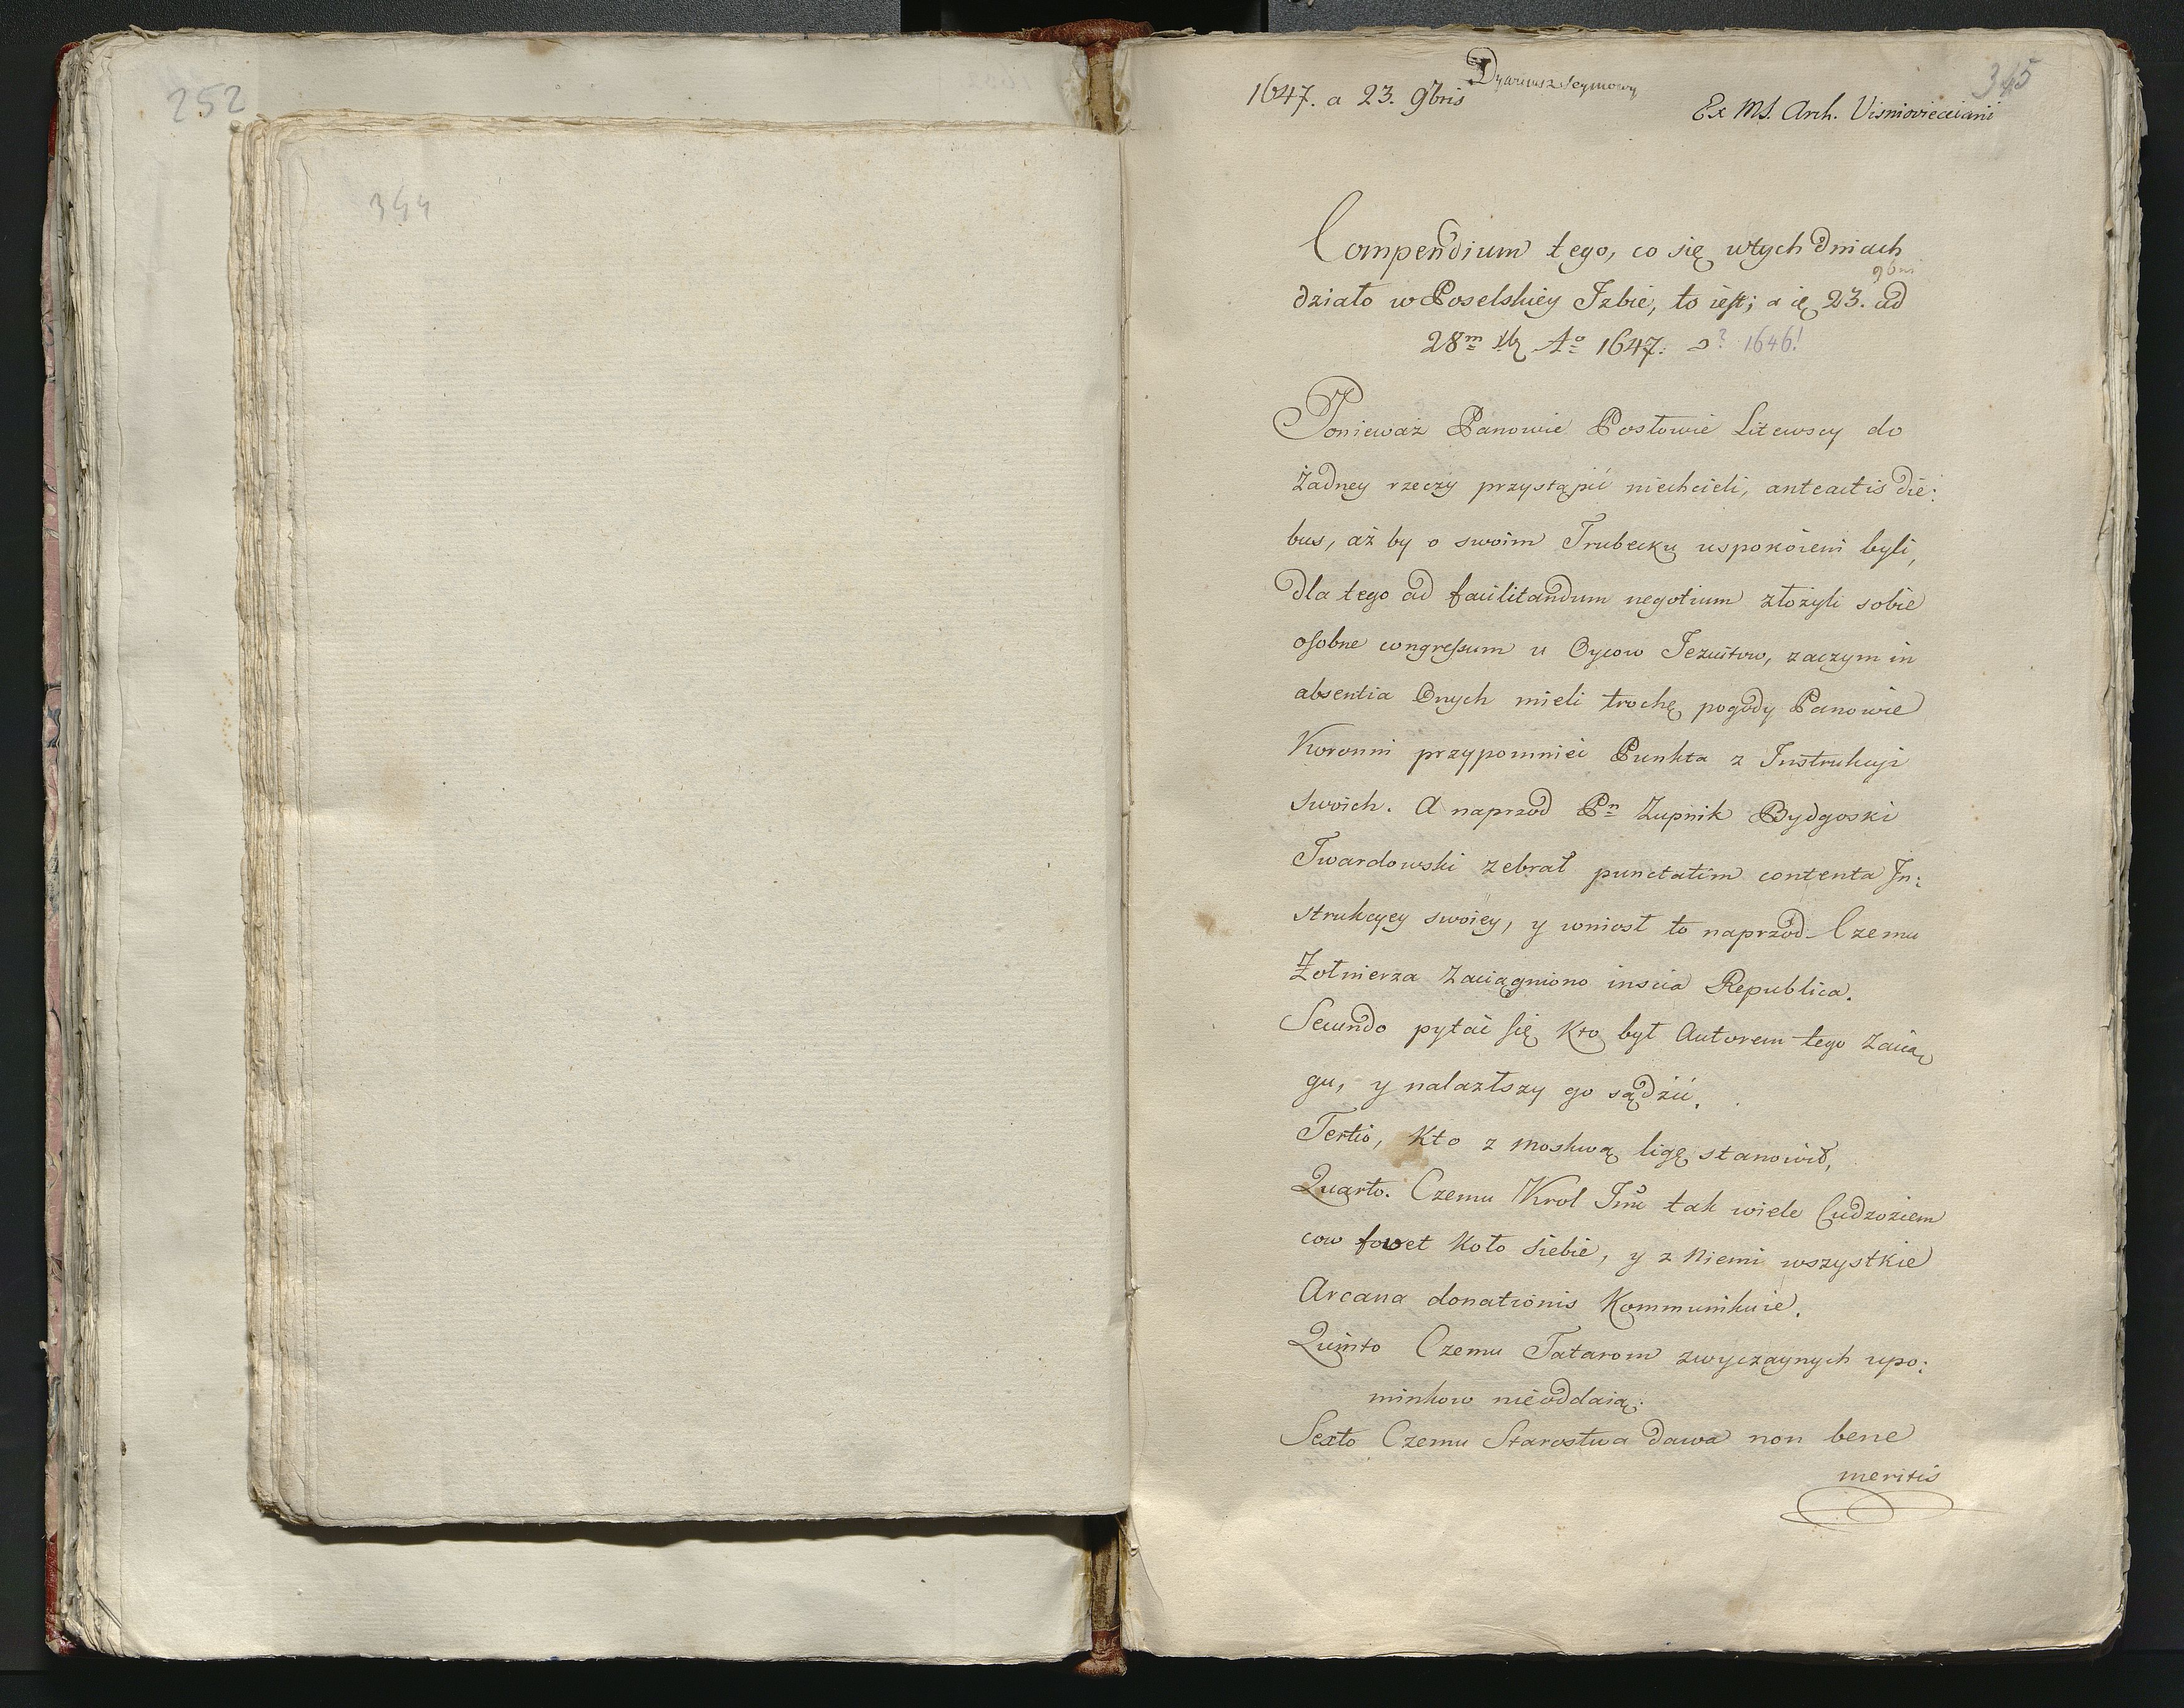 252
344
345
Dyariusz Seymowy
1647. a 23. 9bris
Ex MS. Arch. Visniovieciani
Compendium tego, co się wtych dniach
działo w Poselskiey Izbie, to iest; a 23. ad
9bris
28m Ao 1647. 1646!
Ponieważ Panowie Posłowie Litewscy do
żadney rzeczy przystąpić niechcieli, anteactis die:
bus, aż by o swoim Trubecku uspokoieni byli,
dla tego ad facilitandum negotium złożyli sobie
osobne congressum u Oycow Jezuitow, zaczym in
absentia Onych mieli trochę pogody Panowie
Koronni przypomnieć Punkta z Instrukcji
swoich. A naprzod Pn Zupnik Bydgoski
Twardowski zebrał punctatim contenta In:
strukcyey swoiey, y wniosł to naprzod Czemu
Żołnierza Zaciągniono inscia Republica.
Secundo pytać się kto był Autorem tego Zacią
gu, y nalazłszy go sądzić.
Tertio, Kto z Moskwą ligę stanowił,
Quarto. Czemu Krol Jmć tak wiele Cudzoziem
cow fovet koło siebie, y z Niemi wszystkie
Arcana donationis Kommunikuie.
Quinto Czemu Tatarom zwyczaynych upo:
minkow nieoddaią.
Sexto Czemu Starostwa dawa non bene
meritis